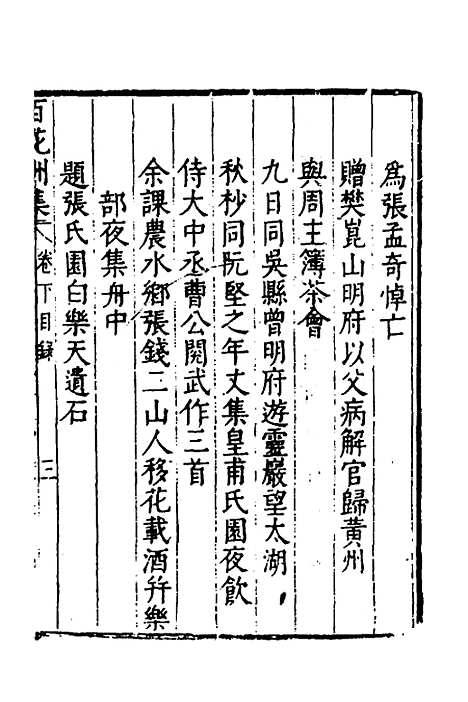 為張孟奇悼亡
贈樊崑山明府以父病解官歸黃州
與周主簿茶會
九日同吳縣曾明府遊靈巖望太湖
秋杪同阮堅之年丈集皇甫氏園夜飲
侍大中丞曹公閱武作三首
余課農水鄉張錢二山人移花載酒并樂
部夜集舟中
題張氏園白樂天遺石
百花洲集 卷下目錄 三